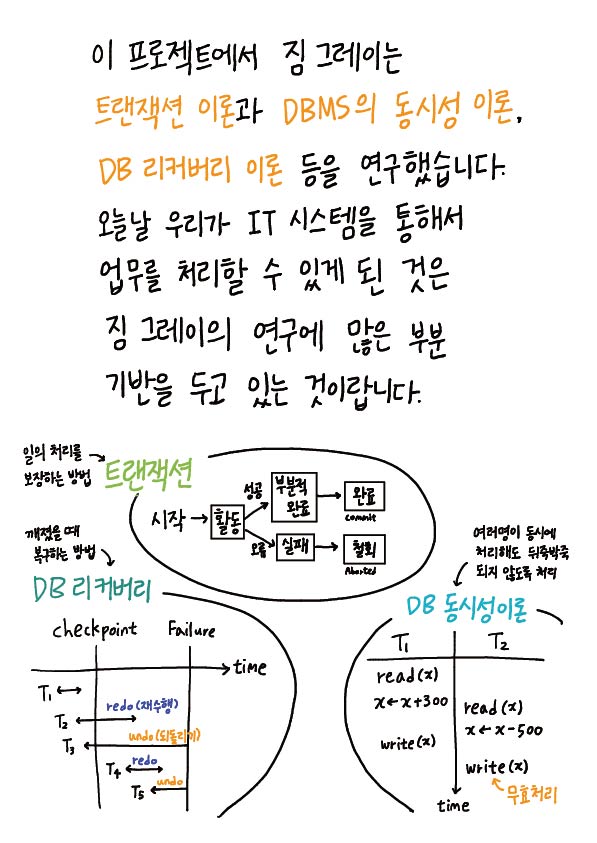 이 프로젝트에서 짐 그레이는
트랜잭션 이론과 DBMS의 동시성 이론,
DB 리커버리 이론 등을 연구했습니다.
오늘날 우리가 IT 시스템을 통해서
업무를 처리할 수 있게 된 것은
짐 그레이의 연구에 많은 부분
기반을 두고 있는 것이랍니다.
일의 처리를
보장하는 방법
트랜잭션
시작
활동
성공
부분적
완료
완료
commit
오류
실패
철회
Aborted
깨졌을 때
복구하는 방법
DB 리커버리
checkpoint Failure
time
T1
redo(재수행)
T2
undo(되돌리기)
T3
redo
T4
undo
T5
여러명이 동시에
처리해도 뒤죽박죽
되지 않도록 처리
DB 동시성이론
T1 T2
read(x)
x←x+300
read(x)
x←x-500
write(x)
write(x)
무효처리
time